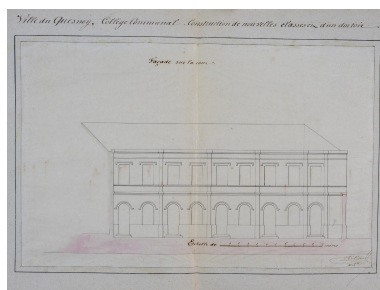 Ville du Quesnoy. Collège Communal. Construction de nouvelles classes et d'un dortoir
Façade sur la cour
Echelle de